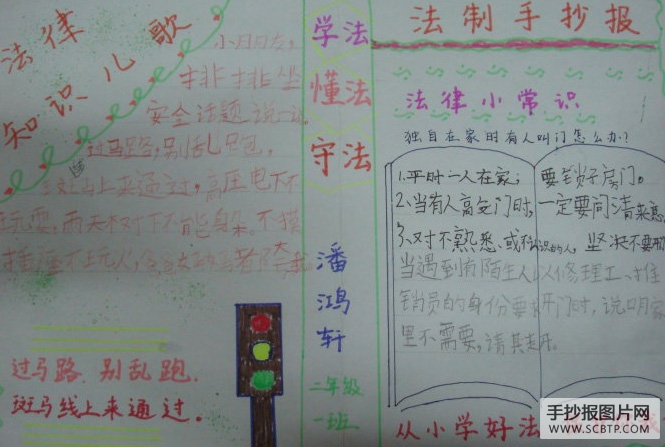 法律
知识儿歌
小朋友,
排排坐
安全话题说一说
过马路,别乱跑,
斑马上来通过,高压电下不
玩耍,雨天树下不能躲。不摸
插座不玩火,
过马路.别乱跑.
斑马线上来通过。
学法
懂法
守法
潘鸿轩
二年级
一班
法制手抄报
法律小常识
独自在家时有人叫门怎么办?
1.平时一人在家;要锁好房门。
2、当有人高交门时,一定要问清来意
3、对不熟悉、或不认识的人,坚决不要开
当遇到有陌生人以修理工、推
销员的身份要求开门时,说明家
里不需要,请其走开。
从小学好法
手抄报图片网
WWW.SCBTP.COM